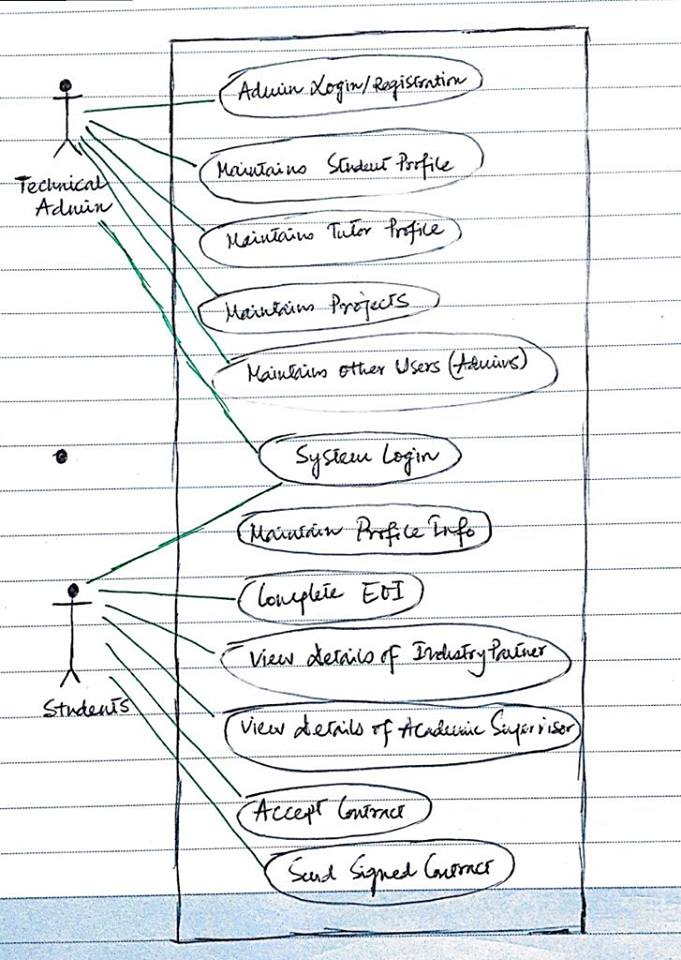 Admin Login/Registration
Maintains Student Profile
Technical
Admin
Maintains Tutor Profile
Maintains Projects
Maintains other Users (Admins)
System Login
Maintain Profile Info
Complete EOI
View details of Industry Partner
Students
View details of Academic Supervisor
Accept Contract
Send Signed Contract